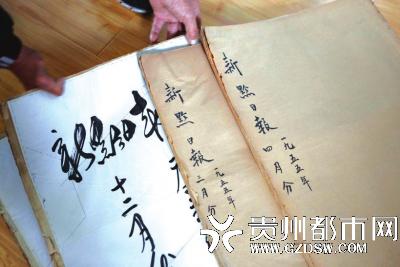 新黔日报
十二月
新黔日報 二月分
一九五五年
新黔日報 四月分
一九五五年
贵州都市网
WWW.GZDSW.COM